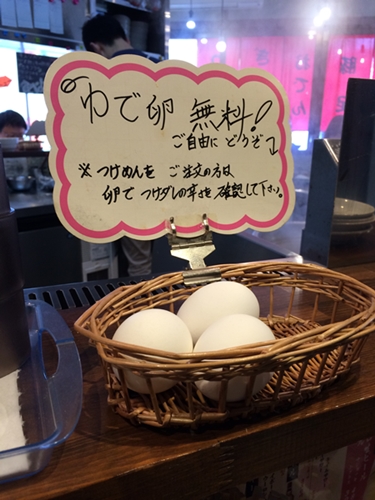 ゆで卵 無料!!
ご自由に どうぞ
※ つけめんを ご注文の方は
卵で つけダレの辛さを 確認して下さい。